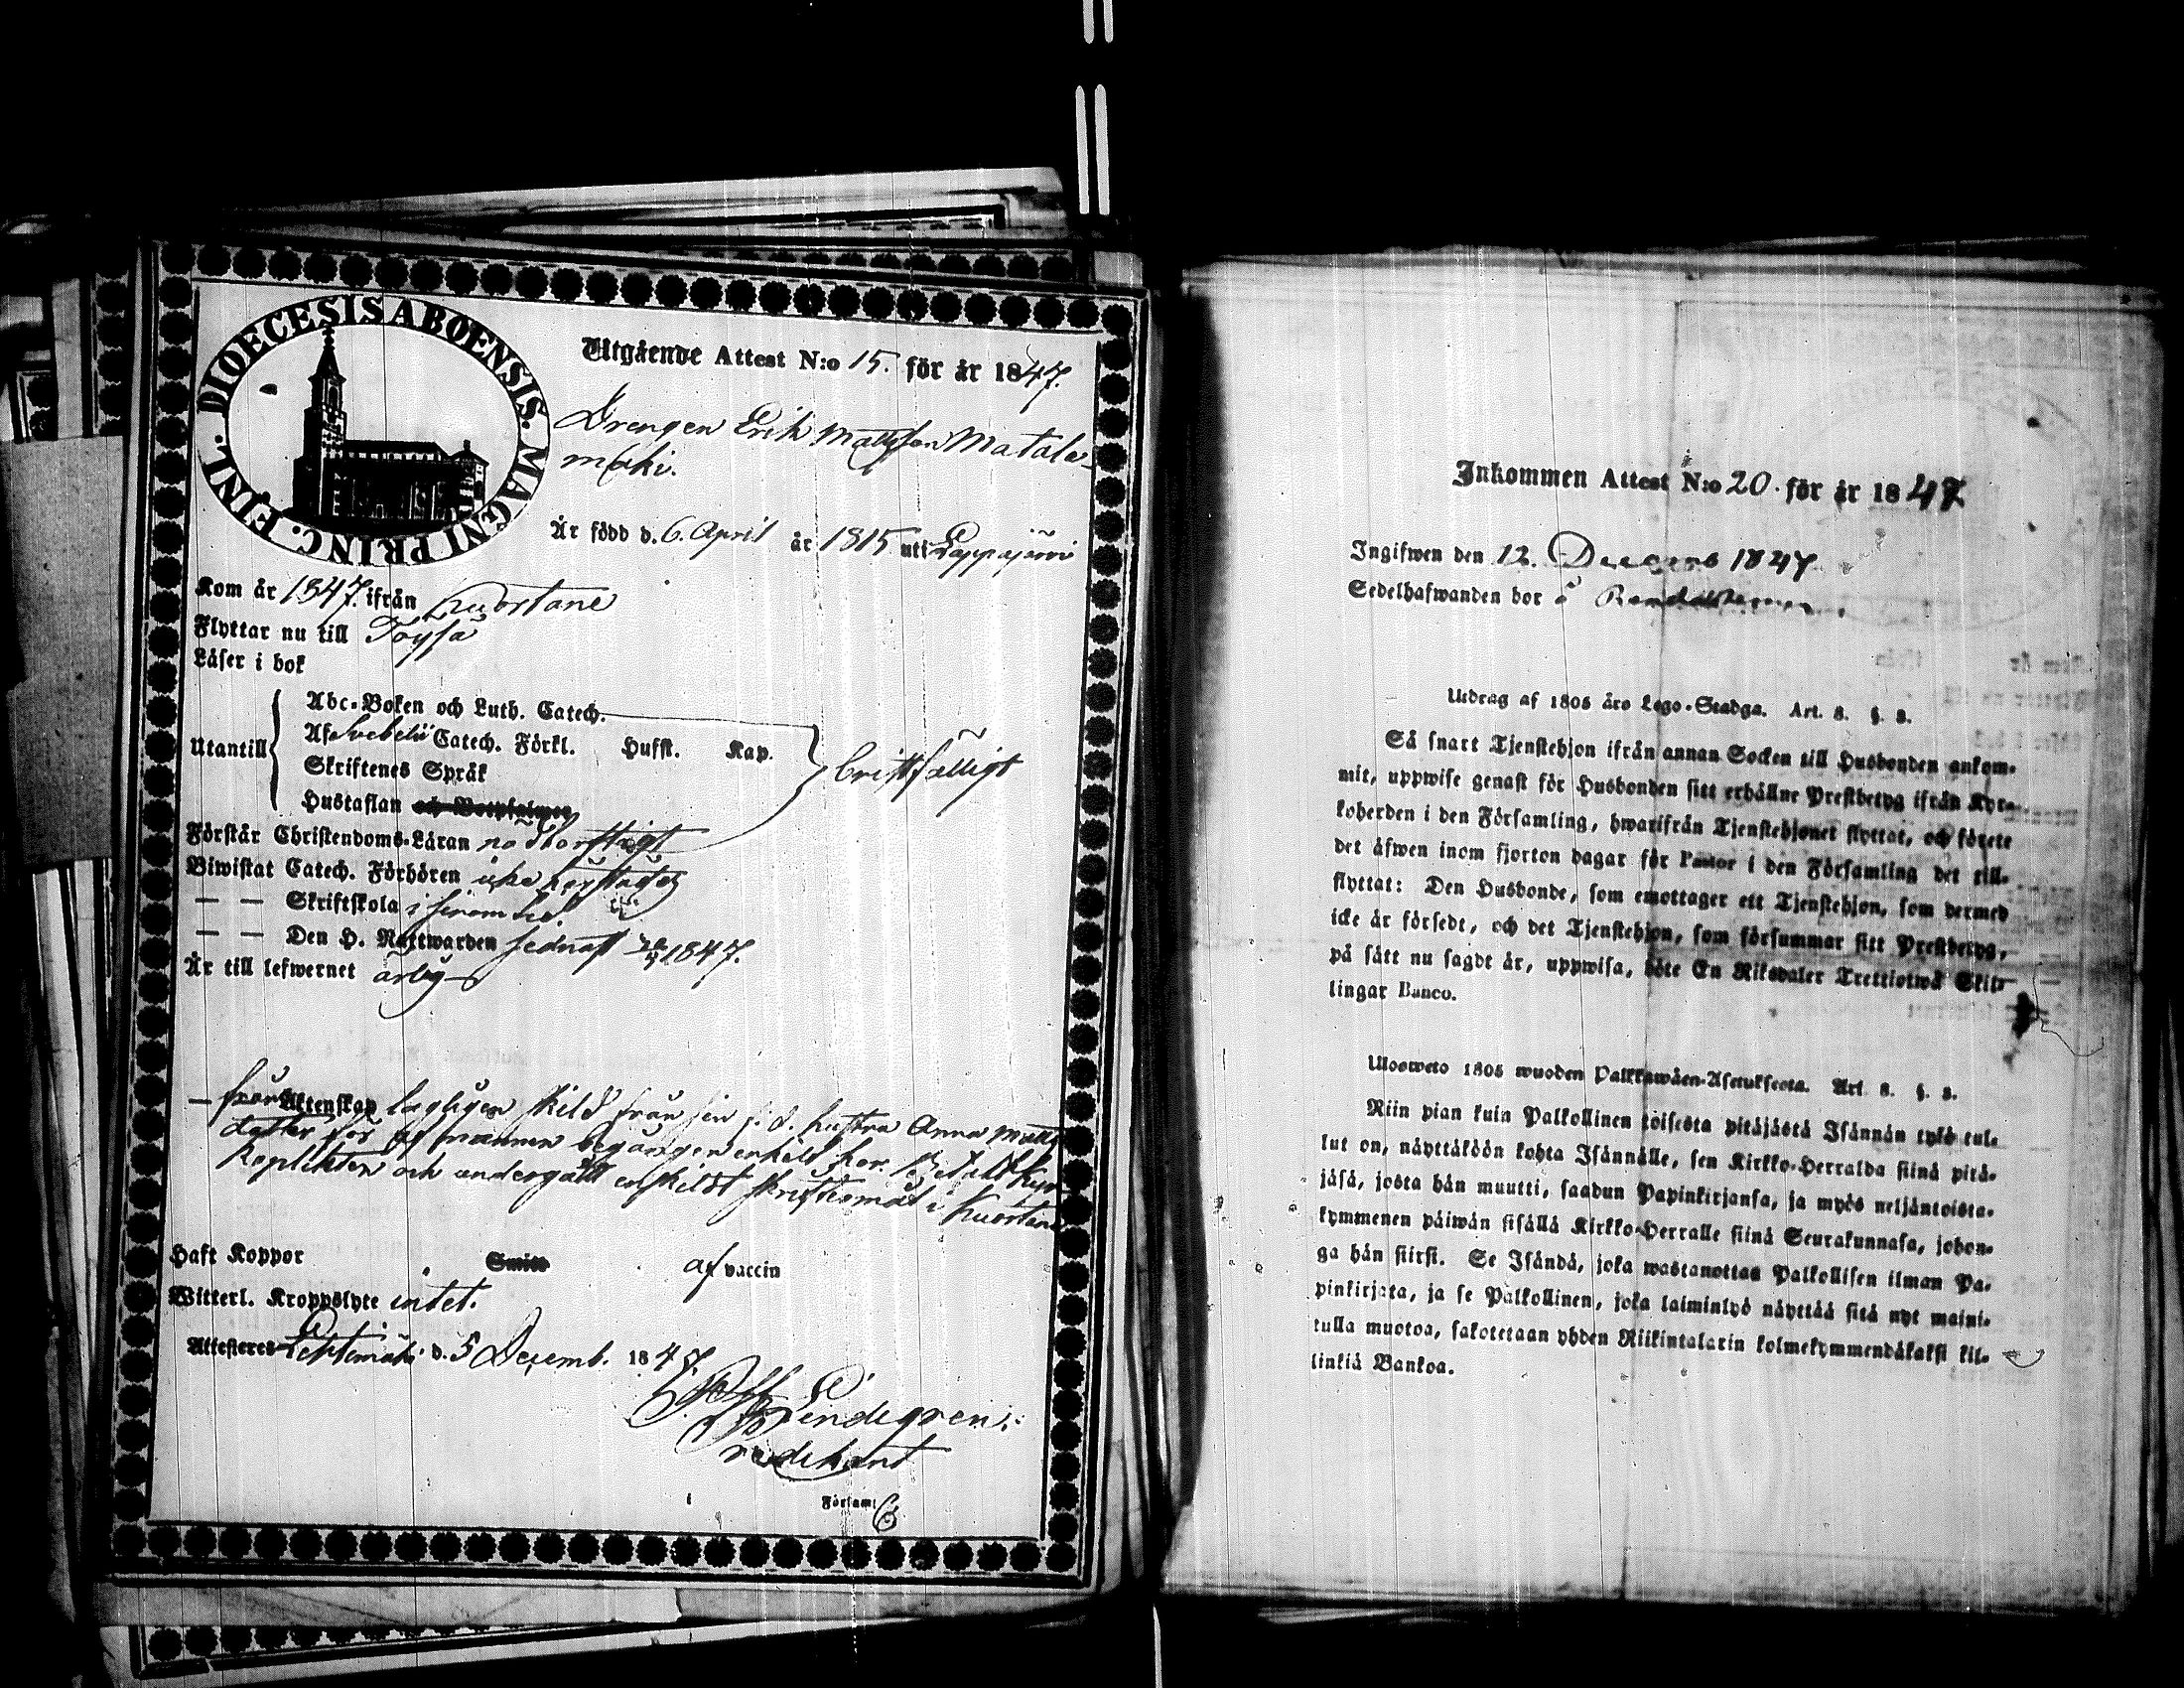 DIOECESIS ABOENSIS. MAGNI PRINC. FINL.
Utgående Attest N:o 15. för år 1847.
Drengen Erik Mattsson Matala-
mäki.
Är född d. 6. April år 1815 uti Lappajärvi
Kom år 1847. ifrån Kuortane
Flyttar nu till Töysä
Läser i bok
Utantill
Abc-Boken och Luth. Catech.
Af Svebelii Catech. Förkl. Hussl. Kap.
Skriftenes Språk
Hustaflan och Botpsalmer
bristfälligt
Förstår Christendoms-Läran nödtorftigt
Biwistat Catech. Förhören icke härstädes
— — Skriftskola i sinom tid.
— — Den H. Nattwarden sednast 1847.
Är till lefwernet ärlig
— från Äktenskap lagligen skild från sin f. d. hustru Anna Matts
dotter för af mannen begången enkelt hor. Betalt Kyr-
koplikten och undergått enskildt skriftermål i Kuortane
Haft Koppor Smitt af vaccin
Witterl. Kroppslyte intet.
Attesteras Lehtimäki d. 5 Decemb. 1847.
Lindegren.
Predikant
i Församl.
Inkommen Attest N:o 20. för år 1847
Ingifwen den 12. Decemb 1847
Sedelhafwanden bor å
Utdrag af 1805 års Lego-Stadga. Art. 8. §. 8.
Så snart Tjenstehjon ifrån annan Socken till Husbonden ankom-
mit, uppwise genast för Husbonden sitt erhållne Prestbetyg ifrån Kyr-
koherden i den Församling, hwarifrån Tjenstehjonet flyttat, och förete
det äfwen inom fjorton dagar för Pastor i den Församling det till-
flyttat: Den Husbonde, som emottager ett Tjenstehjon, som dermed
icke är försedt, och det Tjenstehjon, som försummar sitt Prestbetyg,
på sätt nu sagdt är, uppwisa, böte En Riksdaler Trettiotwå Skil-
lingar Banco.
Ulosweto 1805 wuoden Palkkawäen-Asetuksesta. Art. 8. §. 8.
Niin pian kuin Palkollinen toisesta pitäjästä Isännän tykö tul-
lut on, näyttäköön kohta Isännälle, sen Kirkko-Herralda siinä pitä-
jäsä, josta hän muutti, saadun Papinkirjansa, ja myös neljäntoista-
kymmenen päiwän sisällä Kirkko-Herralle siinä Seurakunnasa, johon-
ga hän siirsi. Se Isändä, joka wastanottaa Palkollisen ilman Pa-
pinkirjata, ja se Palkollinen, joka laiminlyö näyttää sitä nyt maini-
tulla muotoa, sakotetaan yhden Riikintalarin kolmekymmendäkaksi kil-
linkiä Bankoa.